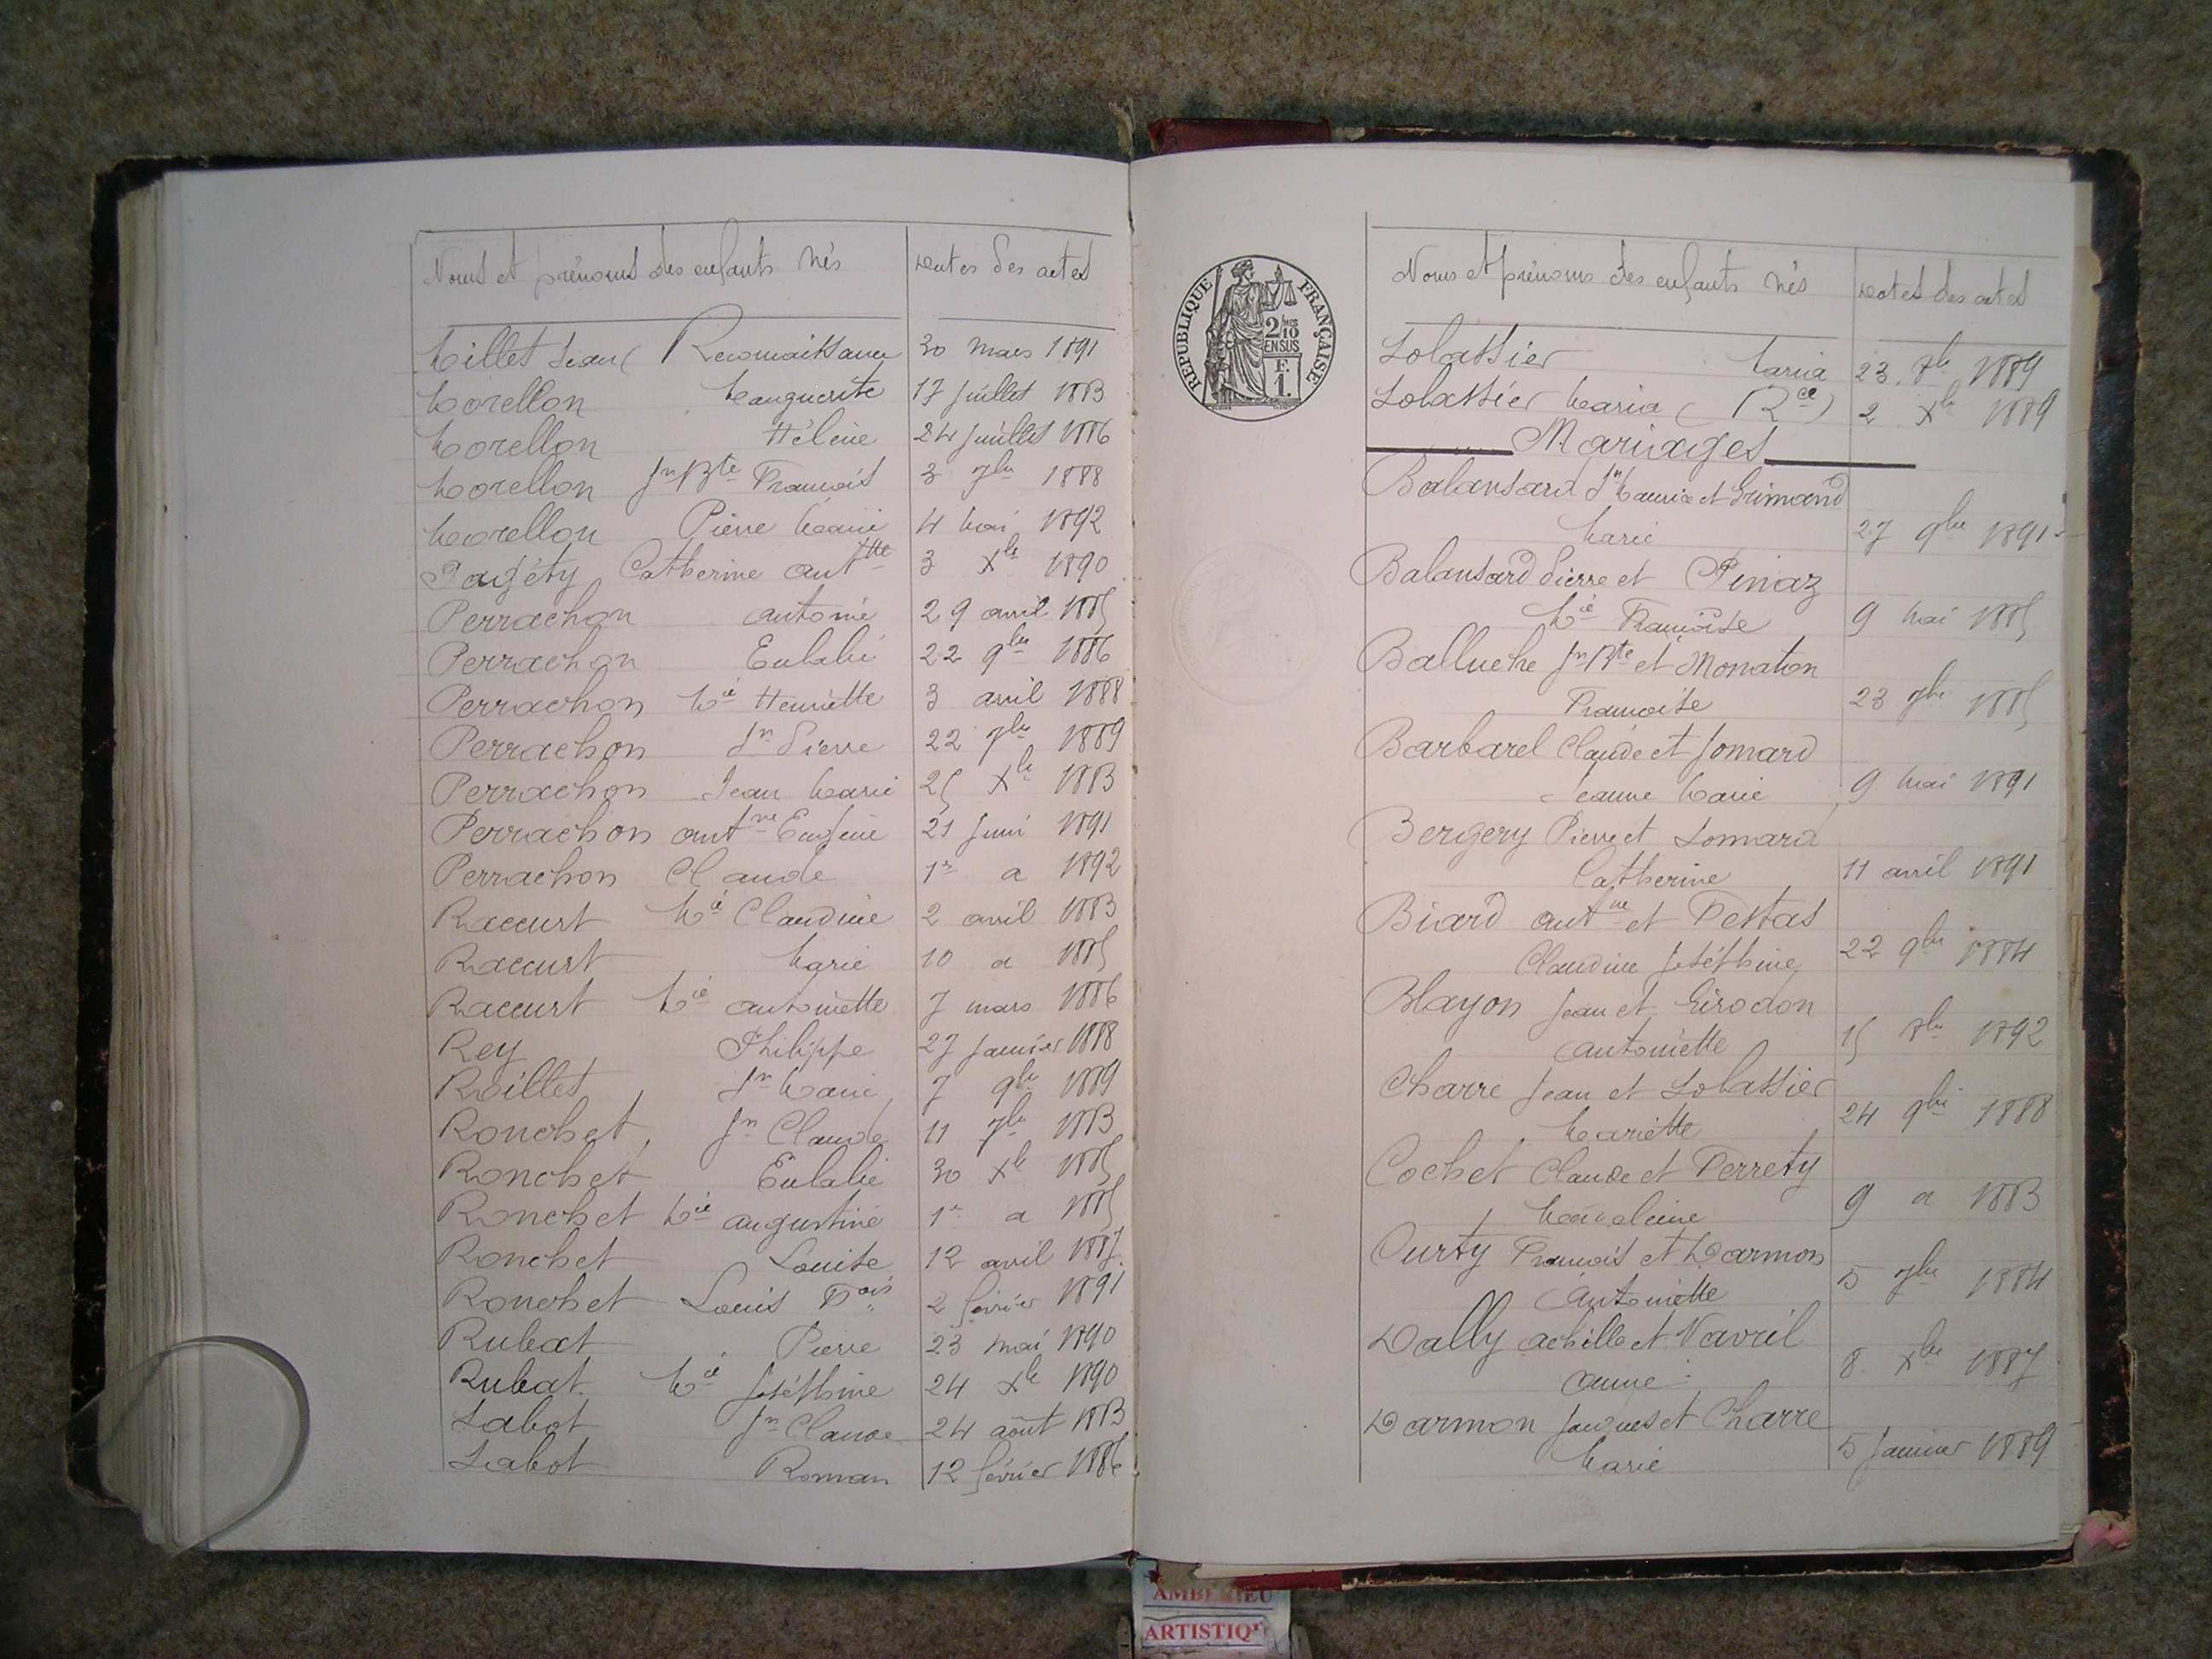 Noms et prénoms des enfants nés Dates des actes
Millet Jean ( Reconnaissance 30 mars 1891
Morellon Marguerite 17 juillet 1883
Morellon Hélène 24 juillet 1886
Morellon Jn Bte François 3 7bre 1888
Morellon Pierre Marie 4 Mai 1892
Pagéty Catherine Anttte 3 Xbre 1890
Perrachon Antoine 29 avril 1885
Perrachon Eulalie 22 9bre 1886
Perrachon Mie Henriette 3 avril 1888
Perrachon Jn Pierre 22 7bre 1889
Perrachon Jean Marie 25 Xbre 1883
Perrachon Antne Eugène 21 Juin 1891
Perrachon Claude 1er a 1892
Raccurt Mie Claudine 2 avril 1883
Raccurt Marie 10 a 1885
Raccurt Mie Antoinette 7 mars 1886
Rey Philippe 27 Janvier 1888
Roillet Jn Marie 7 9bre 1889
Ronchet, Jn Claude 11 7bre 1883
Ronchet Eulalie 30 Xbre 1885
Ronchet Mie Augustine 1er a 1885
Ronchet Louise 12 avril 1887
Ronchet Louis Fois 2 février 1891
Rubat Pierre 23 mai 1890
Rubat Mie Joséphine 24 Xbre 1890
Sabot Jn Claude 24 août 1883
Sabot Roman 12 février 1886
REPUBLIQUE FRANÇAISE
2/10 EN SUS
F. 1.
Noms et prénoms des enfants nés Dates des actes
Solassier Maria 23 8bre 1889
Solassier Maria ( Rce ) 2 Xbre 1889
Mariages
Balansard Jn Maurice et Grimand
Marie 27 9bre 1891
Balansard Pierre et Pinaz
Mie Françoise 9 Mai 1885
Balluche Jn Bte et Monaton
Françoise 23 7bre 1885
Barbarel Claude et Jomard
Jeanne Marie 9 Mai 1891
Bergery Pierre et Jomard
Catherine 11 avril 1891
Biard Antne et Festas
Claudine Joséphine 22 9bre 1884
Blayon Jean et Girodon
Antoinette 15 8bre 1892
Charre Jean et Solassier
Mariette 24 9bre 1888
Cochet Claude et Ferrety
Madeleine 9 a 1883
Curty François et Darmon
Antoinette 5 7bre 1884
Dally Achille et Navril
Anne 8 Xbre 1887
Darmon Jacques et Charre
Marie 5 Janvier 1889
AMBERIEU
ARTISTIQ